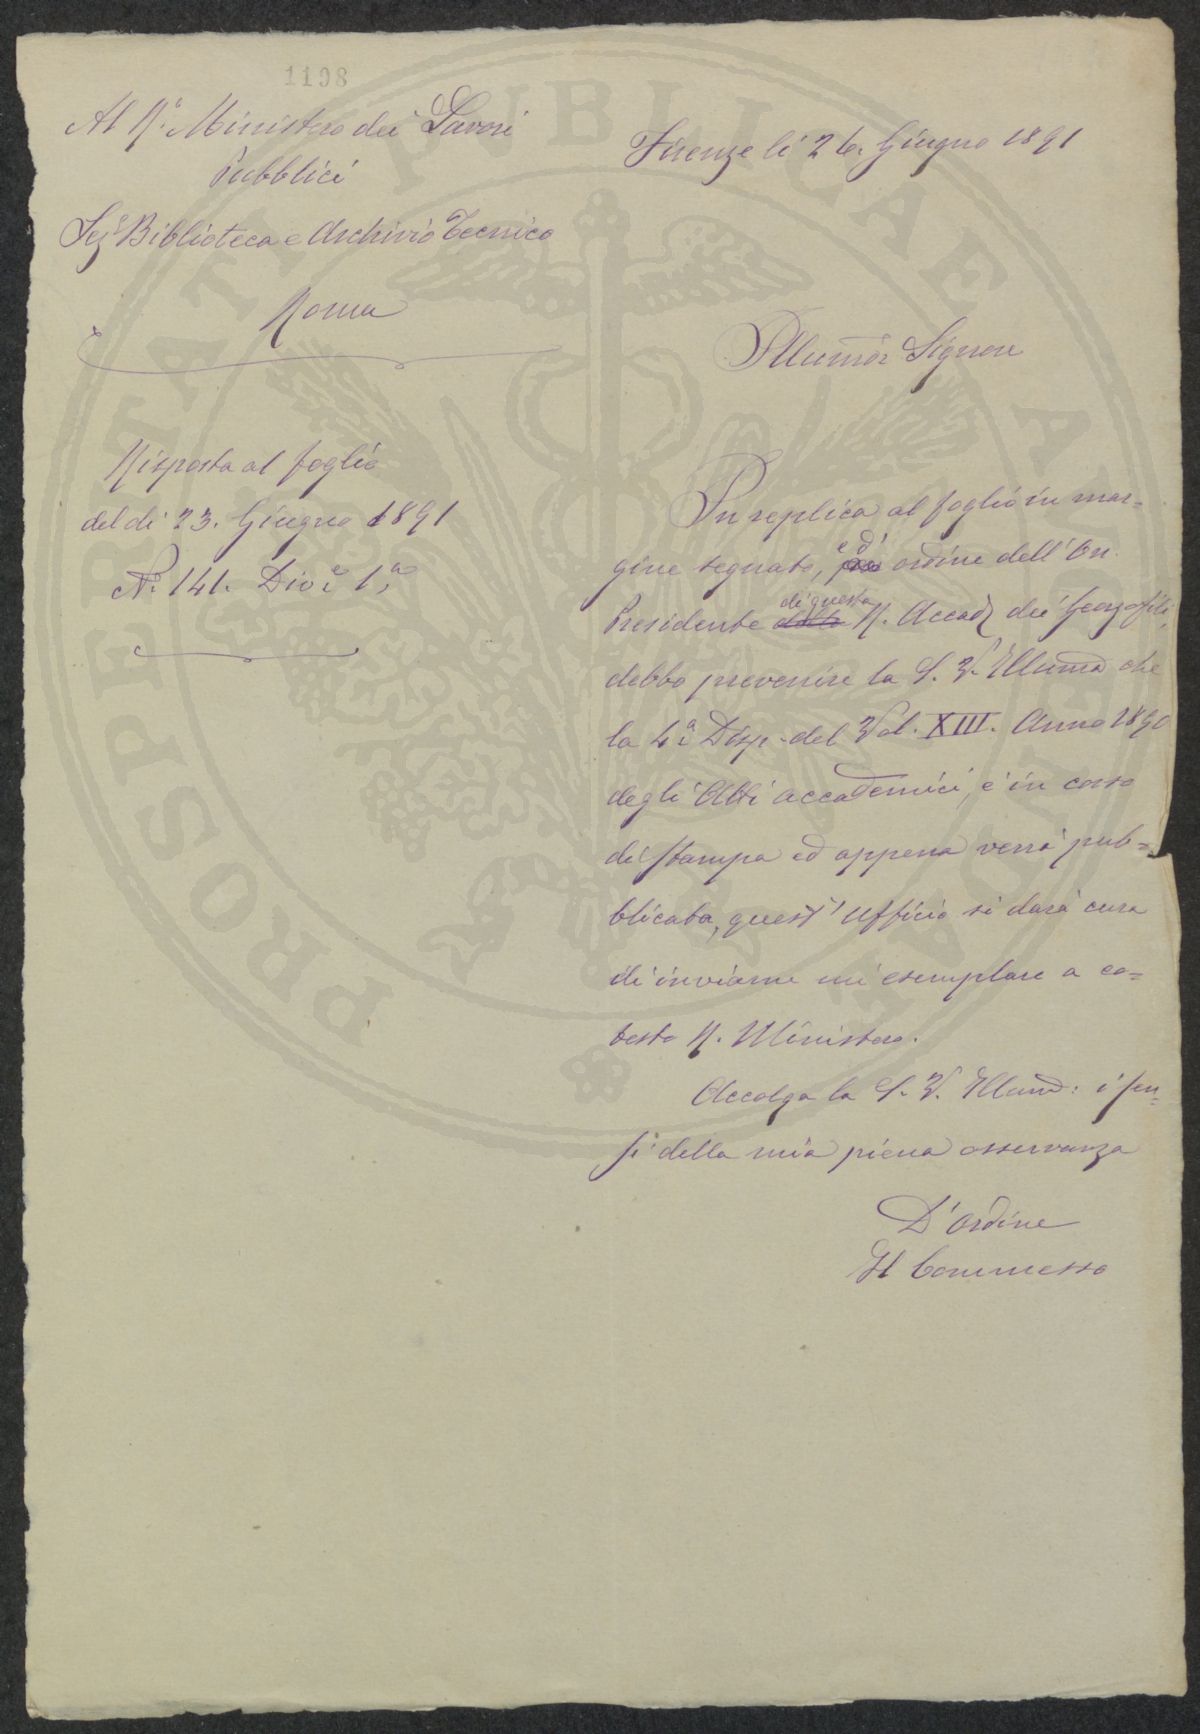 1198
Al R.º Ministero dei Lavori
Pubblici
Sezº Biblioteca e Archivio Tecnico
Roma
Risposta al foglio
del dì 23. Giugno 1891
Nº 141. Divºe 1ª
Firenze li 26. Giugno 1891
Illumõr Signore
In replica al foglio in mar=
gine segnato, ed' ordine dell' On.
Presidente di questa R. Accadª dei Georgofili,
debbo prevenire la S. V. Illumã che
la 4ª Disp. del Vol. XIII. Anno 1890
degli Atti accademici, è in corso
di stampa ed appena verrà pub=
blicata, quest' Ufficio si darà cura
di inviarne un esemplare a co=
testo R. Ministero.
Accolga la S. V. Illumã: i sen=
si della mia piena osservanza
D'Ordine
Il Commesso
PROSPERITATI PUBLICAE AUGENDAE